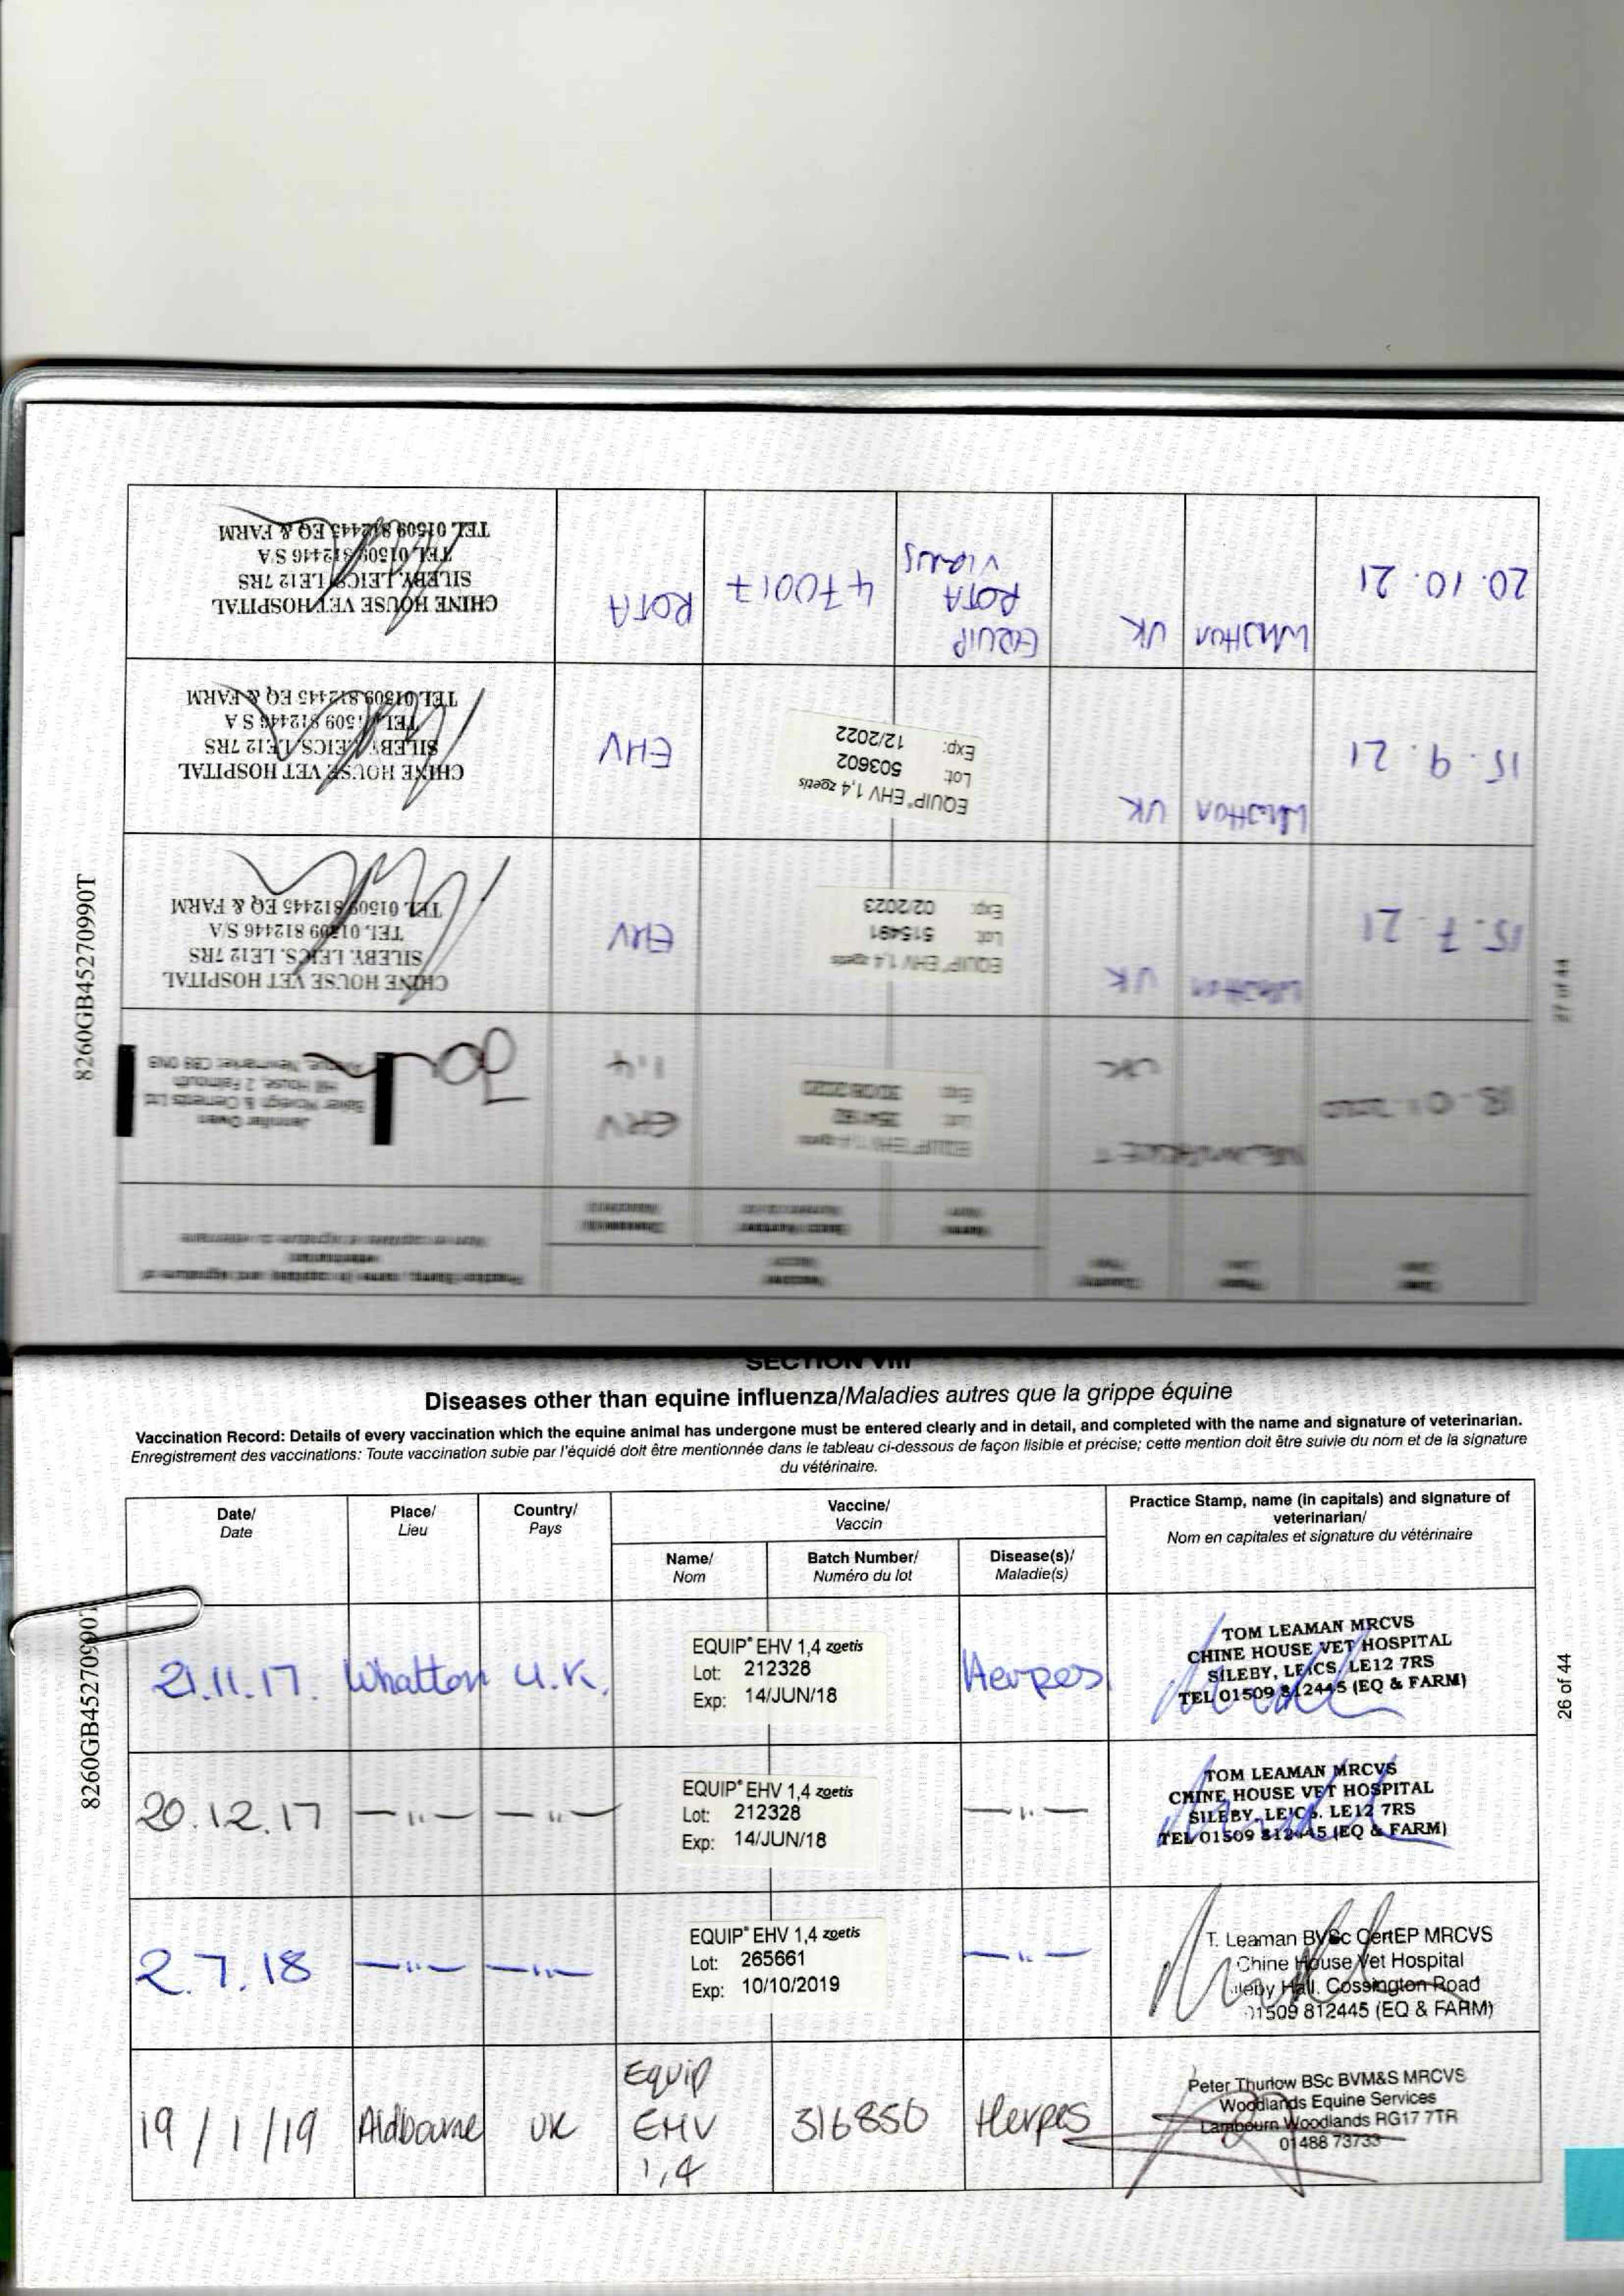 SECTION VIII
Diseases other than equine influenza/Maladies autres que la grippe équine
Vaccination Record: Details of every vaccination which the equine animal has undergone must be entered clearly and in detail, and completed with the name and signature of veterinarian.
Enregistrement des vaccinations: Toute vaccination subie par l'équidé doit être mentionnée dans le tableau ci-dessous de façon lisible et précise; cette mention doit être suivie du nom et de la signature
du vétérinaire.
Date/
Date
Place/
Lieu
Country/
Pays
Vaccine/
Vaccin
Name/
Nom
Batch Number/
Numéro du lot
Disease(s)/
Maladie(s)
Practice Stamp, name (in capitals) and signature of
veterinarian/
Nom en capitales et signature du vétérinaire
21.11.17. Whatton U.K.
EQUIP® EHV 1,4 zoetis
Lot: 212328
Exp: 14/JUN/18
Herpes
TOM LEAMAN MRCVS
CHINE HOUSE VET HOSPITAL
SILEBY, LEICS, LE12 7RS
TEL 01509 812445 (EQ & FARM)
20.12.17 — " — — " —
EQUIP® EHV 1,4 zoetis
Lot: 212328
Exp: 14/JUN/18
— " —
TOM LEAMAN MRCVS
CHINE HOUSE VET HOSPITAL
SILEBY, LEICS. LE12 7RS
TEL 01509 812445 (EQ & FARM)
2.7.18 — " — — " —
EQUIP® EHV 1,4 zoetis
Lot: 265661
Exp: 10/10/2019
— " —
T. Leaman BVSc CertEP MRCVS
Chine House Vet Hospital
Sileby Hall, Cossington Road
01509 812445 (EQ & FARM)
19/1/19 Aldbourne UK
Equip
EHV
1,4
316850
Herpes
Peter Thurlow BSc BVM&S MRCVS
Woodlands Equine Services
Lambourn Woodlands RG17 7TR
01488 73733
8260GB45270990T
26 of 44
Date
Place
Country
Vaccine
Name
Batch Number
Practice Stamp, name (in capitals) and signature of
veterinarian
Nom en capitales et signature du vétérinaire
18-01-2020 NEWMARKET UK
EQUIP® EHV 1,4 zoetis
Lot:
Exp: 30/08/2020
EHV
1.4
Jennifer Owen
Baker McVeigh & Clements Ltd
Hill House, 2 Falmouth
Avenue, Newmarket CB8 0NB
15.7.21 Whatton UK
EQUIP® EHV 1,4 zoetis
Lot: 515491
Exp: 02/2023
EHV
CHINE HOUSE VET HOSPITAL
SILEBY, LEICS. LE12 7RS
TEL 01509 812446 S/A
TEL 01509 812445 EQ & FARM
15.9.21 Whatton UK
EQUIP® EHV 1,4 zoetis
Lot: 503602
Exp: 12/2022
EHV
CHINE HOUSE VET HOSPITAL
SILEBY, LEICS, LE12 7RS
TEL 01509 812446 S A
TEL 01509 812445 EQ & FARM
20.10.21 Whatton UK
EQUIP
ROTA
VIRUS
470017
ROTA
CHINE HOUSE VET HOSPITAL
SILEBY, LEICS, LE12 7RS
TEL 01509 812446 S/A
TEL 01509 812445 EQ & FARM
8260GB45270990T
27 of 44